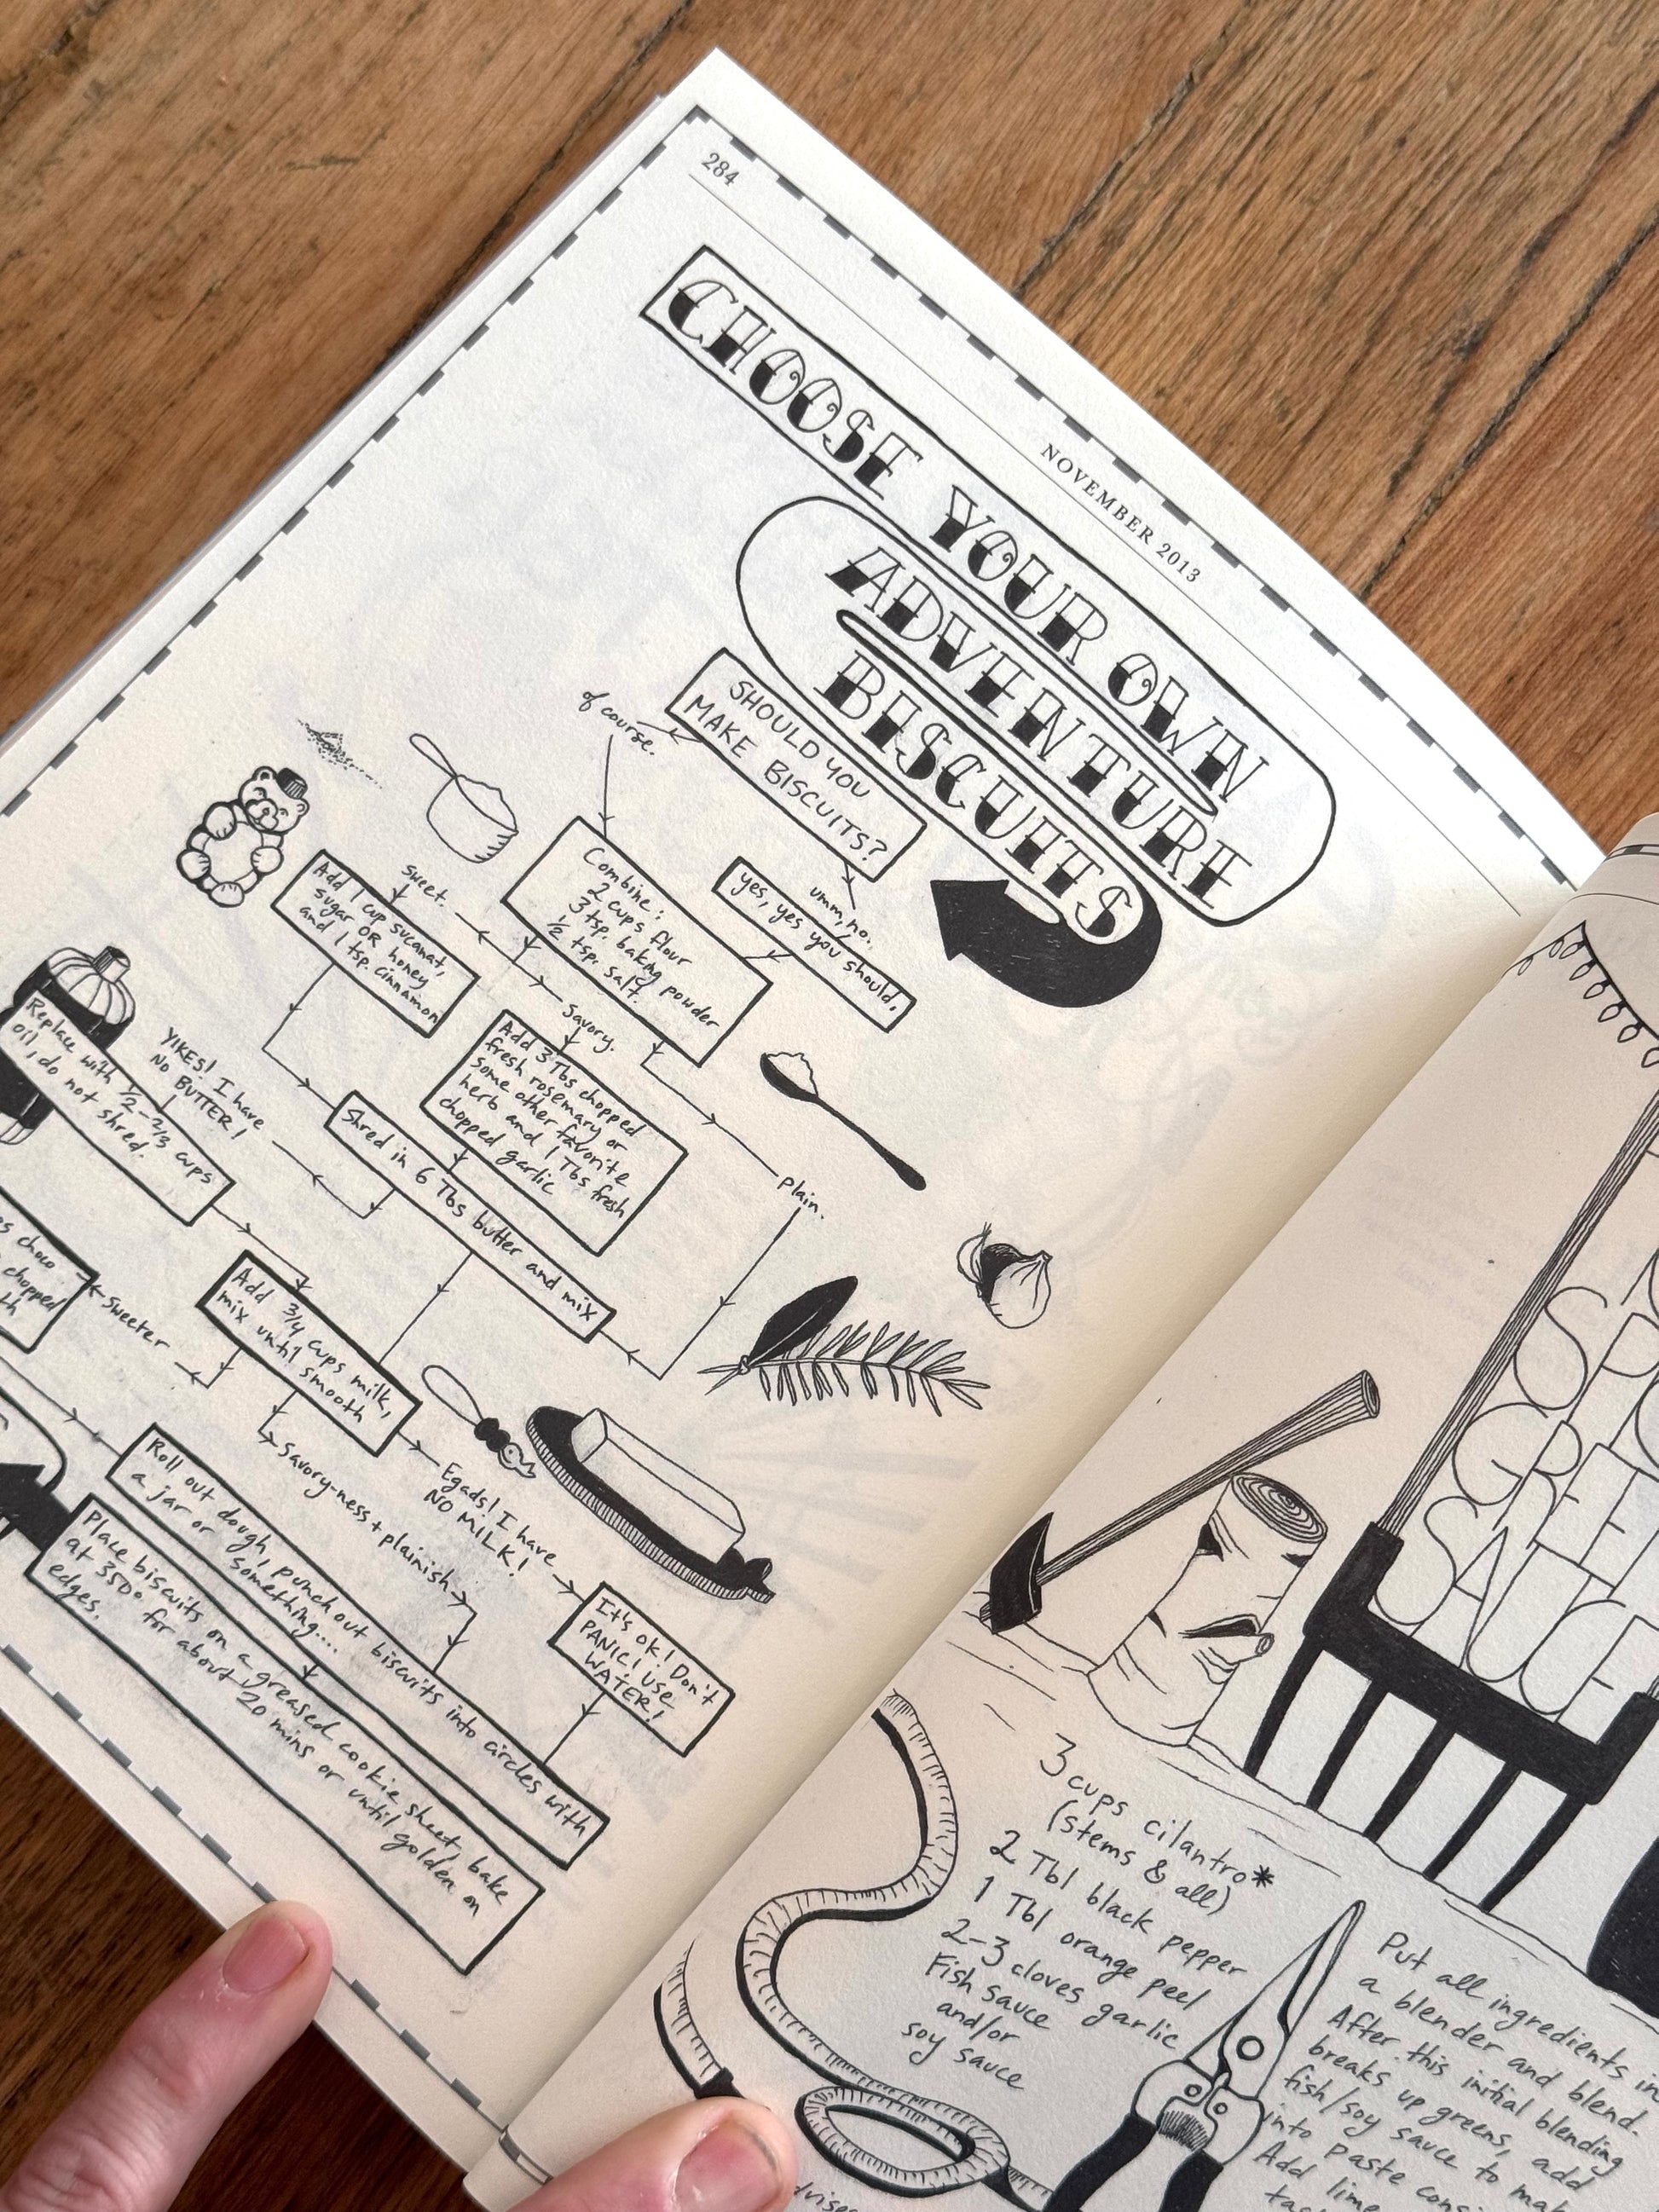 284
NOVEMBER 2013
CHOOSE YOUR OWN
ADVENTURE
BISCUITS
SHOULD YOU
MAKE BISCUITS?
of course.
umm, no.
yes, yes you should,
Combine:
2 cups flour
3 tsp. baking powder
1/2 tsp. salt.
Sweet.
Add 1 cup sucanat,
sugar OR honey
and 1 tsp. cinnamon
Savory.
Add 3 Tbs chopped
fresh rosemary or
some other favorite
herb and 1 Tbs fresh
chopped garlic
Plain.
Shred in 6 Tbs butter and mix
YIKES! I have
NO BUTTER!
Replace with 1/2-2/3 cups
oil, do not shred.
Add 3/4 cups milk,
mix until smooth
Sweeter
choco
chopped
Savory-ness + plainish
Egads! I have
NO MILK!
It's ok! Don't
PANIC! USE
WATER!
Roll out dough, punch out biscuits into circles with
a jar or something....
Place biscuits on a greased cookie sheet, bake
at 350° for about 20 mins or until golden on
edges.
GREE
SAUCE
3 cups cilantro*
(stems & all)
2 Tbl black pepper
1 Tbl orange peel
2-3 cloves garlic
Fish sauce
and/or
soy sauce
Put all ingredients in
a blender and blend.
After this initial blending
breaks up greens, add
fish/soy sauce to
into paste
Add lime